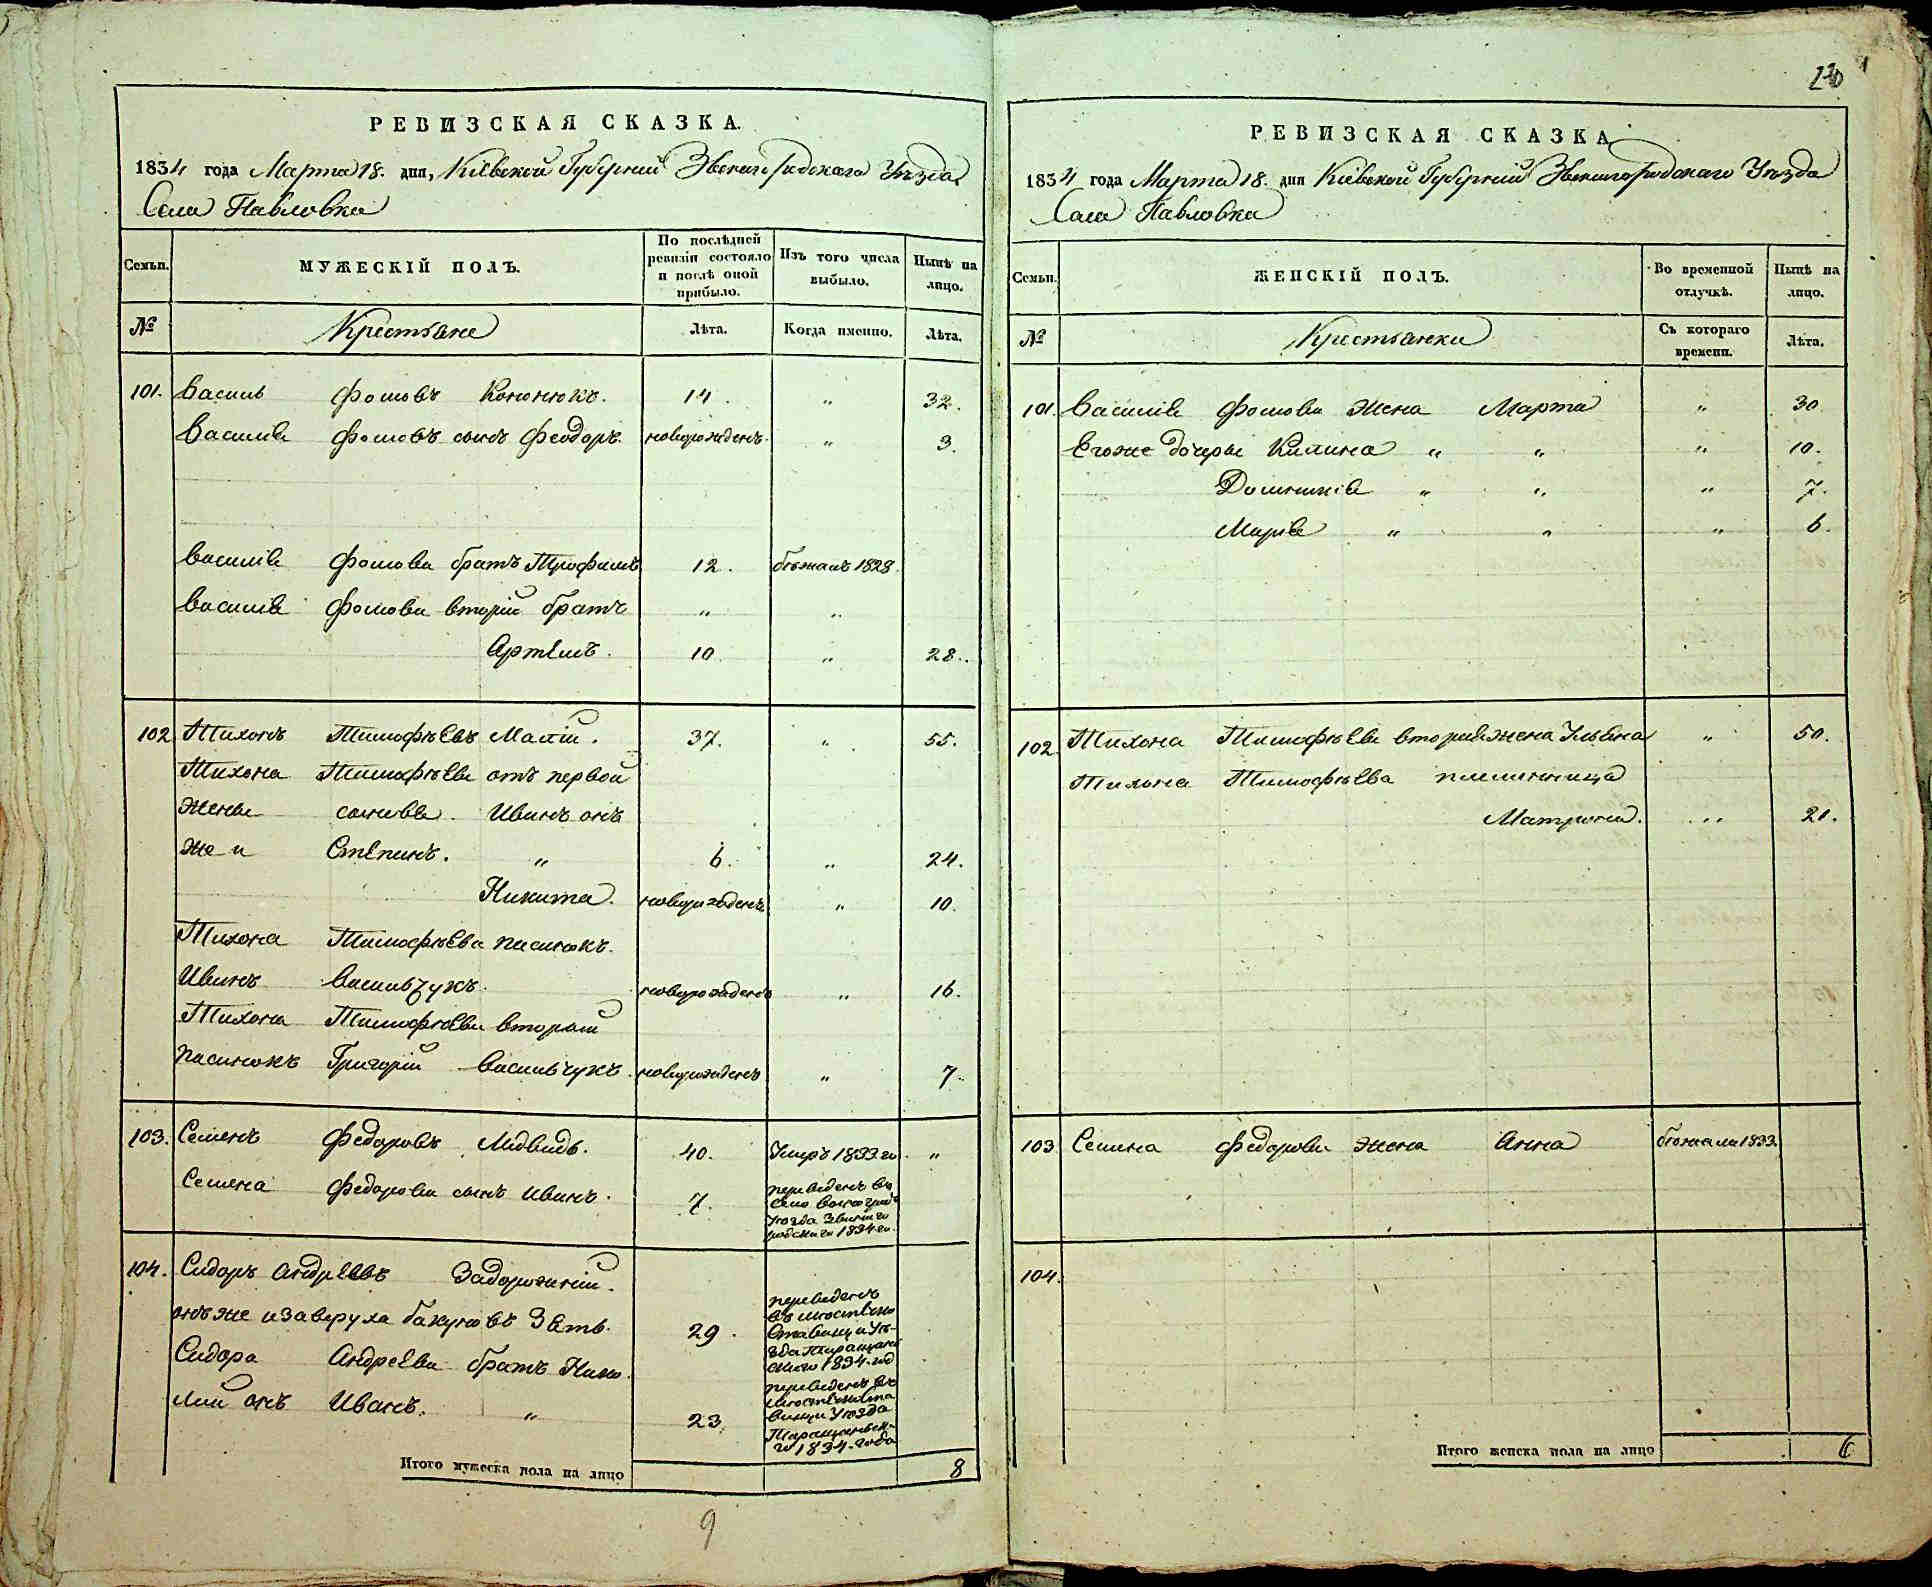 РЕВИЗСКАЯ СКАЗКА.
1834 года Марта 18. дня, Кіевской Губерніи Звенигородского Уезда
Села Павловки
Семьи.
МУЖЕСКІЙ ПОЛЪ.
По послѣдней ревизіи состояло и послѣ оной прибыло.
Изъ того числа выбыло.
Нынѣ на лицо.
№
Крестьяне
Лѣта.
Когда именно.
Лѣта.
101. Василь Фомовъ Кононюкъ. 14. „ 32.
Василія Фомовъ сынъ Феодоръ. новорожденъ. „ 3.
Василія Фомова братъ Трофимъ 12. бежалъ 1828.
Василія Фомова вторій братъ „ „
Артемъ. 10. „ 28.
102. Тихонъ Тимофѣевъ Малій. 37. „ 55.
Тихона Тимофѣева отъ первой
жены сыновя. Иванъ онъ
же и Степанъ. „ 6. „ 24.
Никита. новорожденъ „ 10.
Тихона Тимофѣева пасинокъ.
Иванъ Васильчукъ. новорожденъ „ 16.
Тихона Тимофѣева вторый
пасинокъ Григорій Васильчукъ. новорожденъ „ 7.
103. Семенъ Федоровъ Медведь. 40. Умръ 1833 го „
Семена Федорова сынъ Иванъ. 7. переведенъ въ
село
уезда Звениго
родского 1834 го.
104. Сидоръ Андреевъ Задорожній.
онъ же и Заверуха бакуновъ Зять. 29. переведенъ
въ местечко
Ставищи Уе-
зда Таращан
ского 1834. год
Сидора Андреева братъ Нико
лай онъ Иванъ. „ 23. переведенъ въ
местечко Ста
вищи Уезда
Таращанск-
го 1834. года
Итого мужеска пола на лицо 8
9
РЕВИЗСКАЯ СКАЗКА
1834 года Марта 18. дня Кіевской Губерніи Звенигородского Уезда
Села Павловки
Семьи.
ЖЕНСКІЙ ПОЛЪ.
Во временной отлучкѣ.
Нынѣ на лицо.
№
Крестьянки
Съ котораго времени.
Лѣта.
101. Василія Фомова жена Марта „ 30.
Егоже дочеры Килина „ „ „ 10.
Домникія „ „ „ 7.
Марія „ „ „ 6.
102. Тихона Тимофѣева вторая жена Ульяна „ 50.
Тихона Тимофѣева племянница
Матрона. „ 20.
103 Семена Федорова жена Анна бежала 1833.
104.
Итого женска пола на лицо 6